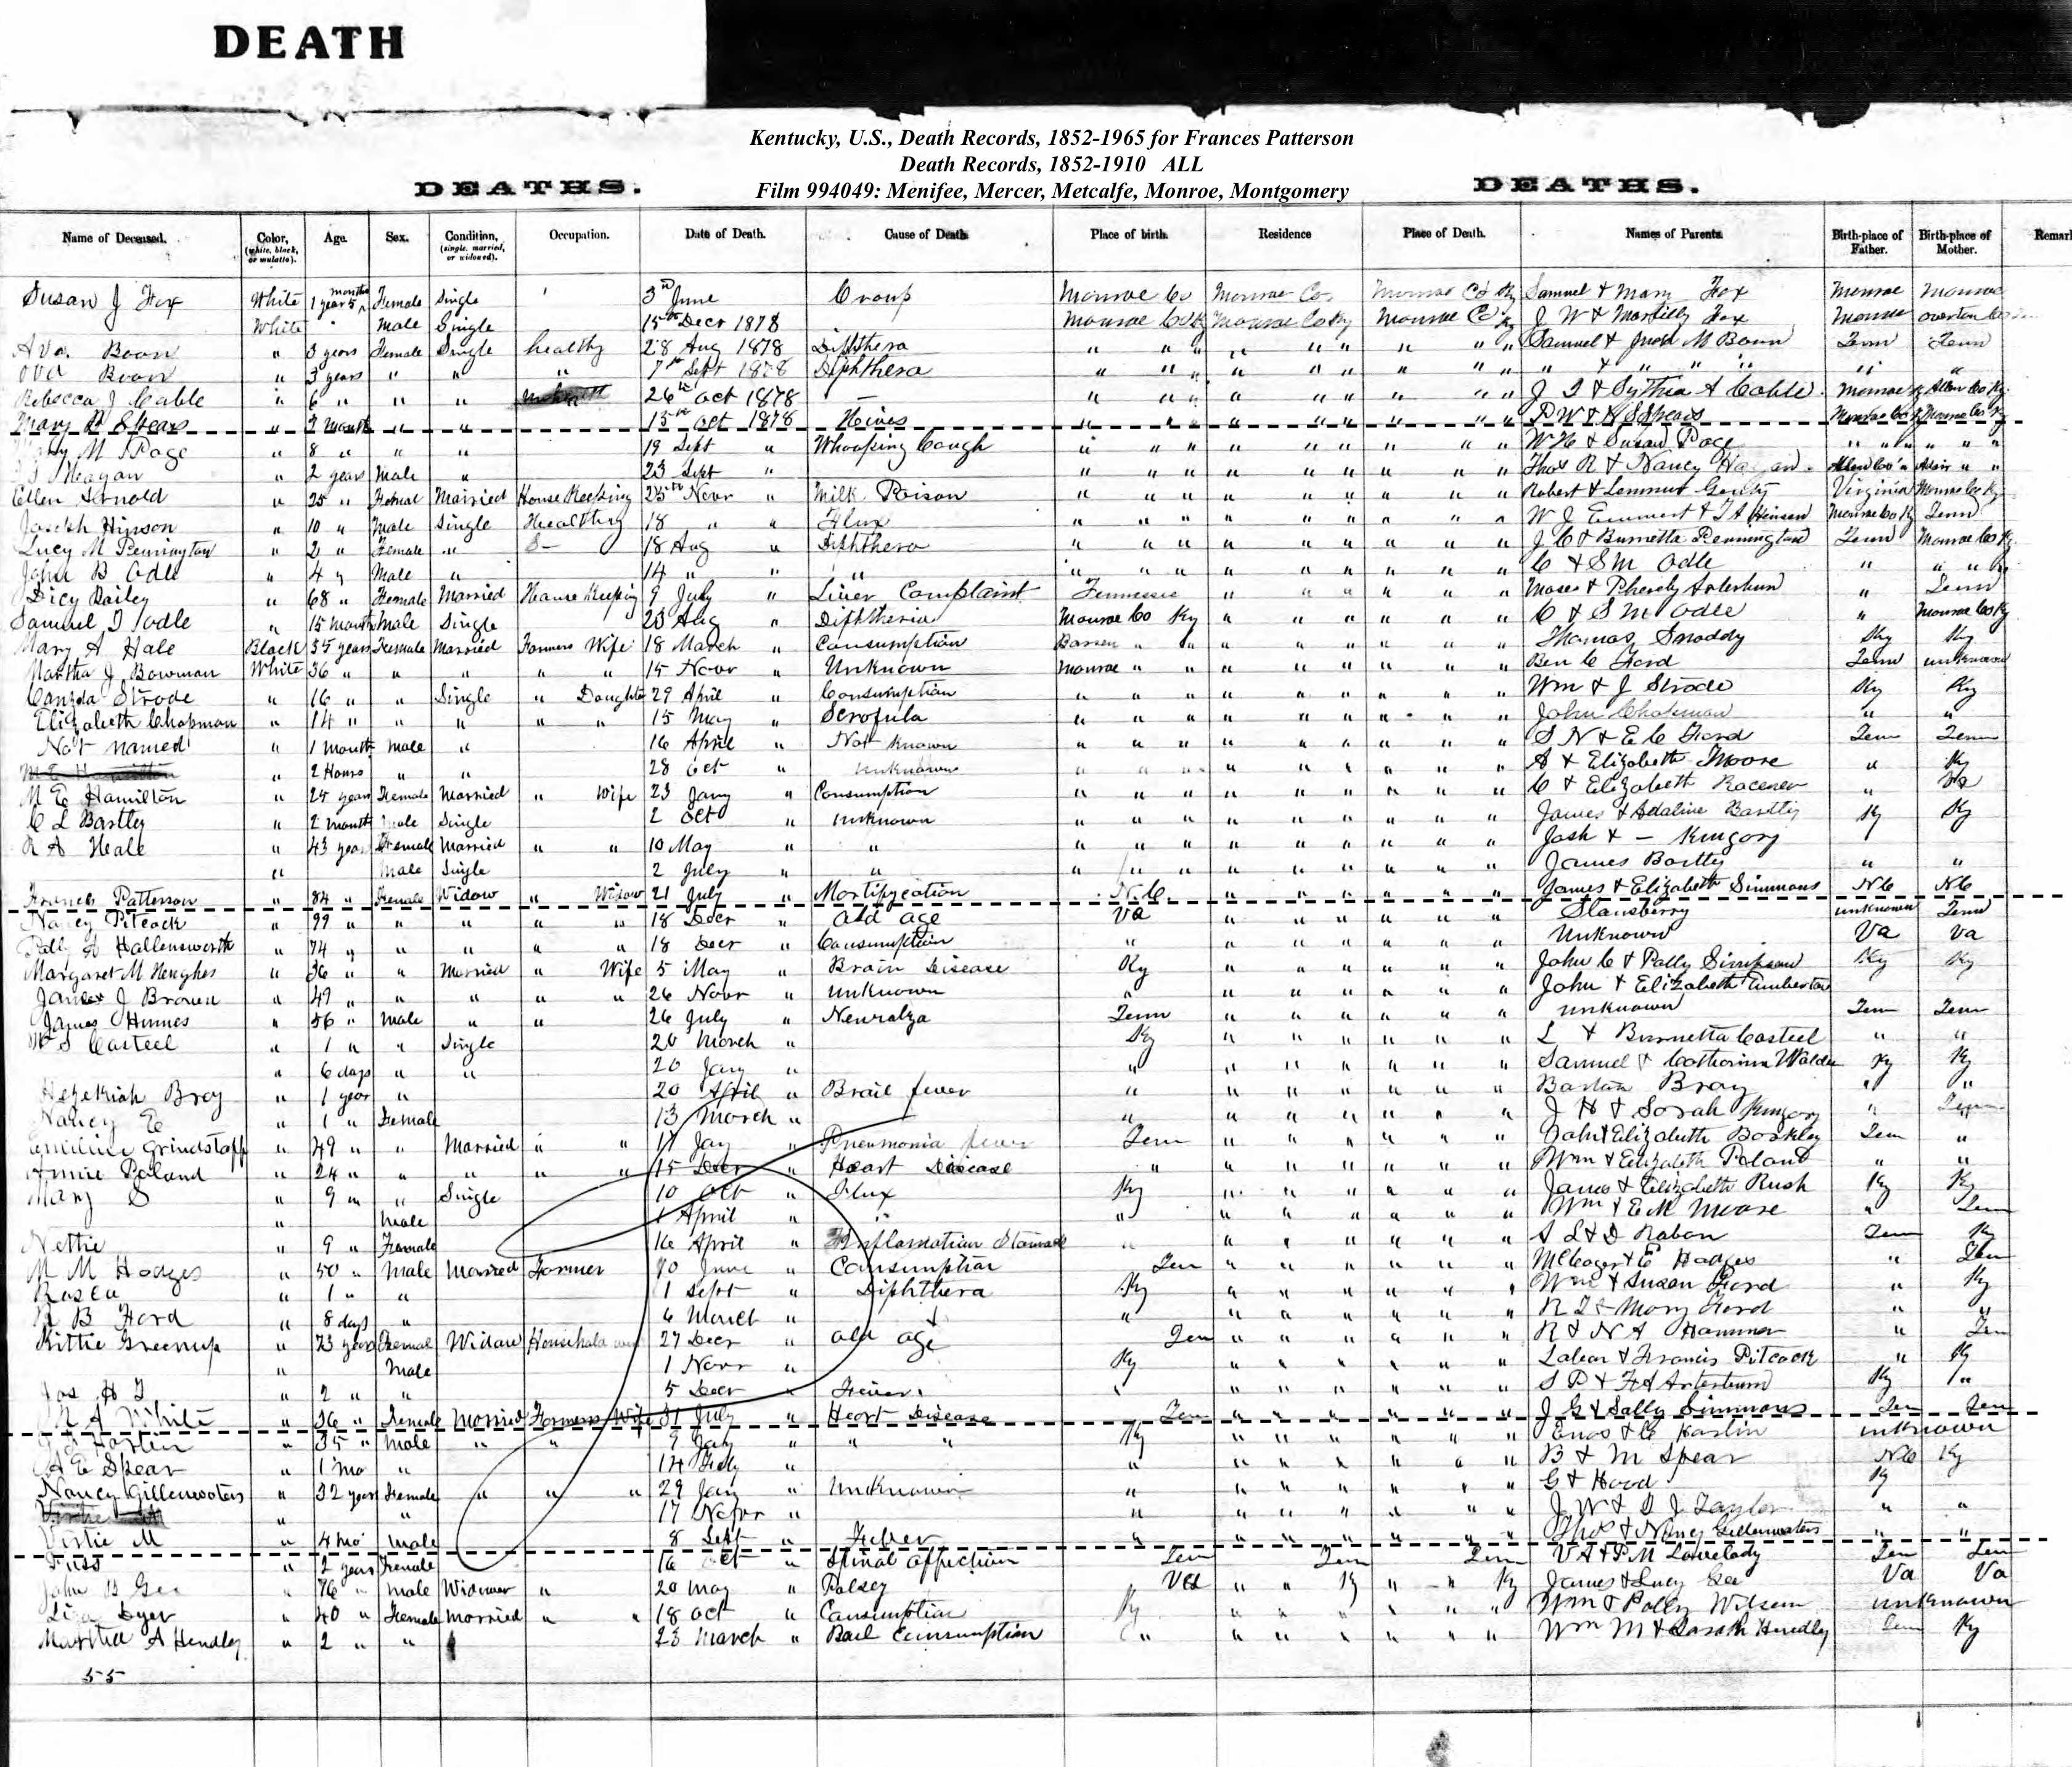 DEATH
Kentucky, U.S., Death Records, 1852-1965 for Frances Patterson
Death Records, 1852-1910 ALL
DEATHS. Film 994049: Menifee, Mercer, Metcalfe, Monroe, Montgomery DEATHS.
Name of Deceased. Color, (white, black, or mulatto). Age. Sex. Condition, (single, married, or widowed). Occupation. Date of Death. Cause of Death Place of birth. Residence Place of Death. Names of Parents. Birth-place of Father. Birth-place of Mother. Remar
Susan J Fox White 1 year 5 months Female Single 3rd June Croup Monroe Co Monroe Co Monroe Co Ky Samuel & Mary Fox Monroe Monroe
White " Male Single 15th Decr 1878 Monroe Co Ky Monroe Co Ky Monroe Co Ky J W & Fox Monroe Overton Co
Ava Boon " 3 years Female Single healthy 28 Aug 1878 Diphthera " " " " " " " " " Samuel & M Boon Tenn Tenn
Ova Boon " 3 years " " " 7th Sept 1878 Diphthera " " " " " " " " " " & " " " " "
Rebecca J Cable " 6 " " " 26th Oct 1878 — " " " " " " " " " J T & Sythia A Cable Monroe Ky Allen Co Ky
Mary Spears " 2 month " " 15th Oct 1878 Hives " " " " " " " " " P W & Spears Monroe Co Ky Monroe Co Ky
Mary M Page " 8 " " " 19 Sept " Whooping Cough " " " " " " " " " W H & Susan Page " " " " " "
Hagan " 2 years Male " 23 Sept " " " " " " " " " " Thos R & Nancy Hagan Allen Co " Adair " "
Ellen Arnold " 25 " Female Married House Keeping 25th Novr " Milk Poison " " " " " " " " " Robert & Virginia Monroe Co Ky
Joseph Hinson " 10 " Male Single Healthy 18 " " Flux " " " " " " " " " W J Emmert & T A Hinson Monroe Co Ky Tenn
Lucy M Pennington " 2 " Female " 18 Aug " Diphthera " " " " " " " " " J C & Burnetta Pennington Tenn Monroe Co Ky
John B Odle " 4 " Male " 14 " " " " " " " " " " " " " C & S M Odle " " " "
Dicy Bailey " 68 " Female Married House Keeping 9 July " Liver Complaint Tennessee " " " " " " Moses & Pherely Arterburn " Tenn
Samuel T Odle " 15 month Male Single 23 Aug " Diphtheria Monroe Co Ky " " " " " " C & S M Odle " Monroe Co Ky
Mary A Hale Black 35 years Female Married Farmers Wife 18 March " Consumption Barren " " " " " " " " Thomas Smoddy Ky Ky
Martha J Bowman White 36 " " " " " 15 Novr " Unknown Monroe " " " " " " " " Ben C Ford Tenn unknown
Canzda Strode " 16 " " Single " Daughter 29 April " Consumption " " " " " " " " " Wm & J Strode Ky Ky
Elizabeth Chapman " 14 " " " " " 15 May " Scrofula " " " " " " " " " John Chapman " "
Not named " 1 month Male " 16 April " Not known " " " " " " " " " S N & E C Ford Tenn Tenn
M E Hamilton " 2 Hours " " 28 Oct " unknown " " " " " " " " " A & Elizabeth Moore " Ky
M E Hamilton " 25 years Female Married " Wife 23 Jany " Consumption " " " " " " " " " C & Elizabeth Racener "
C L Bartley " 2 month Male Single 2 Oct " unknown " " " " " " " " " James & Adaline Bartley Ky Ky
R A Heale " 43 years Female Married " " 10 May " " " " " " " " " " " Josh & — Kingory
" Male Single 2 July " " " " " " " " " " " James Bartley " "
Frances Patterson " 84 " Female Widow " Widow 21 July " Mortifycation N.C. " " " " " " James & Elizabeth Simmons NC NC
Nancy Pitcock " 99 " " " " " 18 Decr " Old age Va " " " " " " Slansberry unknown Tenn
Polly Hallensworth " 74 " " " " " 18 Decr " Consumption " " " " " " " Unknown Va Va
Margaret M Heughes " 36 " " Married " Wife 5 May " Brain Disease Ky " " " " " " John C & Polly Simpson Ky Ky
J Brown " 49 " " " " " 26 Novr " unknown " " " " " " " John & Elizabeth
James Humes " 56 " Male " " 26 July " Neuralga Tenn " " " " " " unknown Tenn Tenn
S Casteel " 1 " " Single 20 March " Ky " " " " " " L & Burnetta Casteel " "
" 6 days " " 20 Jany " " " " " " " " Samuel & Catharine Walden Ky Ky
Hezekiah Bray " 1 year " 20 April " Brail fever " " " " " " " Barton Bray " "
Nancy E " 1 " Female 13 March " " " " " " " " J H & Sarah Kingory "
Emiline Grindstaff " 49 " " Married " " 17 Jay " Pneumonia fever Tenn " " " " " " John & Elizabeth Boakley Tenn "
Annie Poland " 24 " " " " " 15 Decr " Heart Disease " " " " " " " Wm & Elizabeth Poland " "
Mary S " 9 " " Single 10 Oct " Flux Ky " " " " " " James & Elizabeth Rush Ky Ky
" Male 1 April " " " " " " " " " Wm & E M Moore " Tenn
Nettie " 9 " Female 16 April " Inflamation Stomach " " " " " " " S L & D Rabon Tenn Ky
M M Hodges " 50 " Male Married Farmer 10 June " Consumption Ten " " " " " " & E Hodges " Ten
Rosca " 1 " " 1 Sept " Diphthera Ky " " " " " " Wm & Susan Ford " Ky
R B Ford " 8 days " 6 March " " " " " " " " R T & Mary Ford " "
Kittie Greenup " 73 years Female Widow Household 27 Decr " old age Ten " " " " " " R & N A Hammer " Ten
" Male 1 Novr " Ky " " " " " " Laban & Francis Pitcock " Ky
Jos H T " 2 " " 5 Decr " Fever " " " " " " " S P & F A Arterburn Ky "
M A White " 36 " Female Married Farmers Wife 31 July " Heart Disease Ten " " " " " " J G & Sally Simmons Ten Ten
Harlin " 35 " Male " " 9 July " " " Ky " " " " " " Enos & E Harlin unknown
A E Spear " 1 mo " 14 Feby " " " " " " " " B & M Spear NC Ky
Nancy Gillenwaters " 32 years Female " " " 29 Jay " Unknown " " " " " " " G & Hood Ky
" " 17 Novr " " " " " " " " J W & D J Taylor " "
Virtie M " 4 mo Male 8 Sept " Fever " " " " " " " Thos & Nancy Gillenwaters " "
Tuss " 2 years Female 16 Oct " Spinal affection Ten Ten Ten V A & P M Lovelady Ten Ten
John B Gee " 76 " Male Widower " 20 May " Palsey Va " " Ky " " Ky James & Lucy Gee Va Va
Liza Dyer " 40 " Female Married " " 18 Oct " Consumption Ky " " " " " " Wm & Polly Wilson unknown
Martha A Hendley " 2 " " 23 March " Bail Consumption " " " " " " " Wm M & Sarah Hendley Ten Ky
55